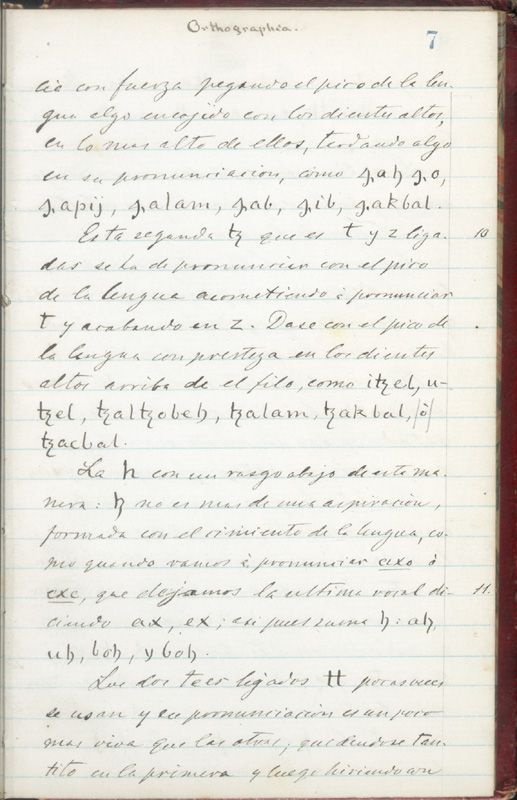 Orthographia.
7
cia con fuerza pegando el pico de la len-
gua algo encojido con los dientes altos,
en lo mas alto de ellos, teniendo algo
en su pronunciacion, como
Esta segunda ꜩ que es t y z liga- 10
das se ha de pronunciar con el pico
de la lengua acometiendo à pronunciar
t y acabando en z. Dase con el pico de
la lengua con presteza en los dientes
altos arriba de el filo, como iꜩel, u-
ꜩel, ꜩalꜩobeɧ, ꜩalam, ꜩakbal, |ò|
ꜩacbal.
La h con un rasgo abajo de esta ma-
nera: ɧ no es mas de una aspiracion,
formada con el                de la lengua, co-
mo quando vamos à pronunciar axo ò
exe, que dejamos la ultima vocal di- 11.
ciendo ax, ex; asi pues suena ɧ: aɧ,
uɧ, boɧ, y boɧ.
Las dos tees ligadas tt pocas veces
se usan y su pronunciacion es un poco
mas viva que las otras, deteniendose tan-
tito en la primera y luego hiriendo con